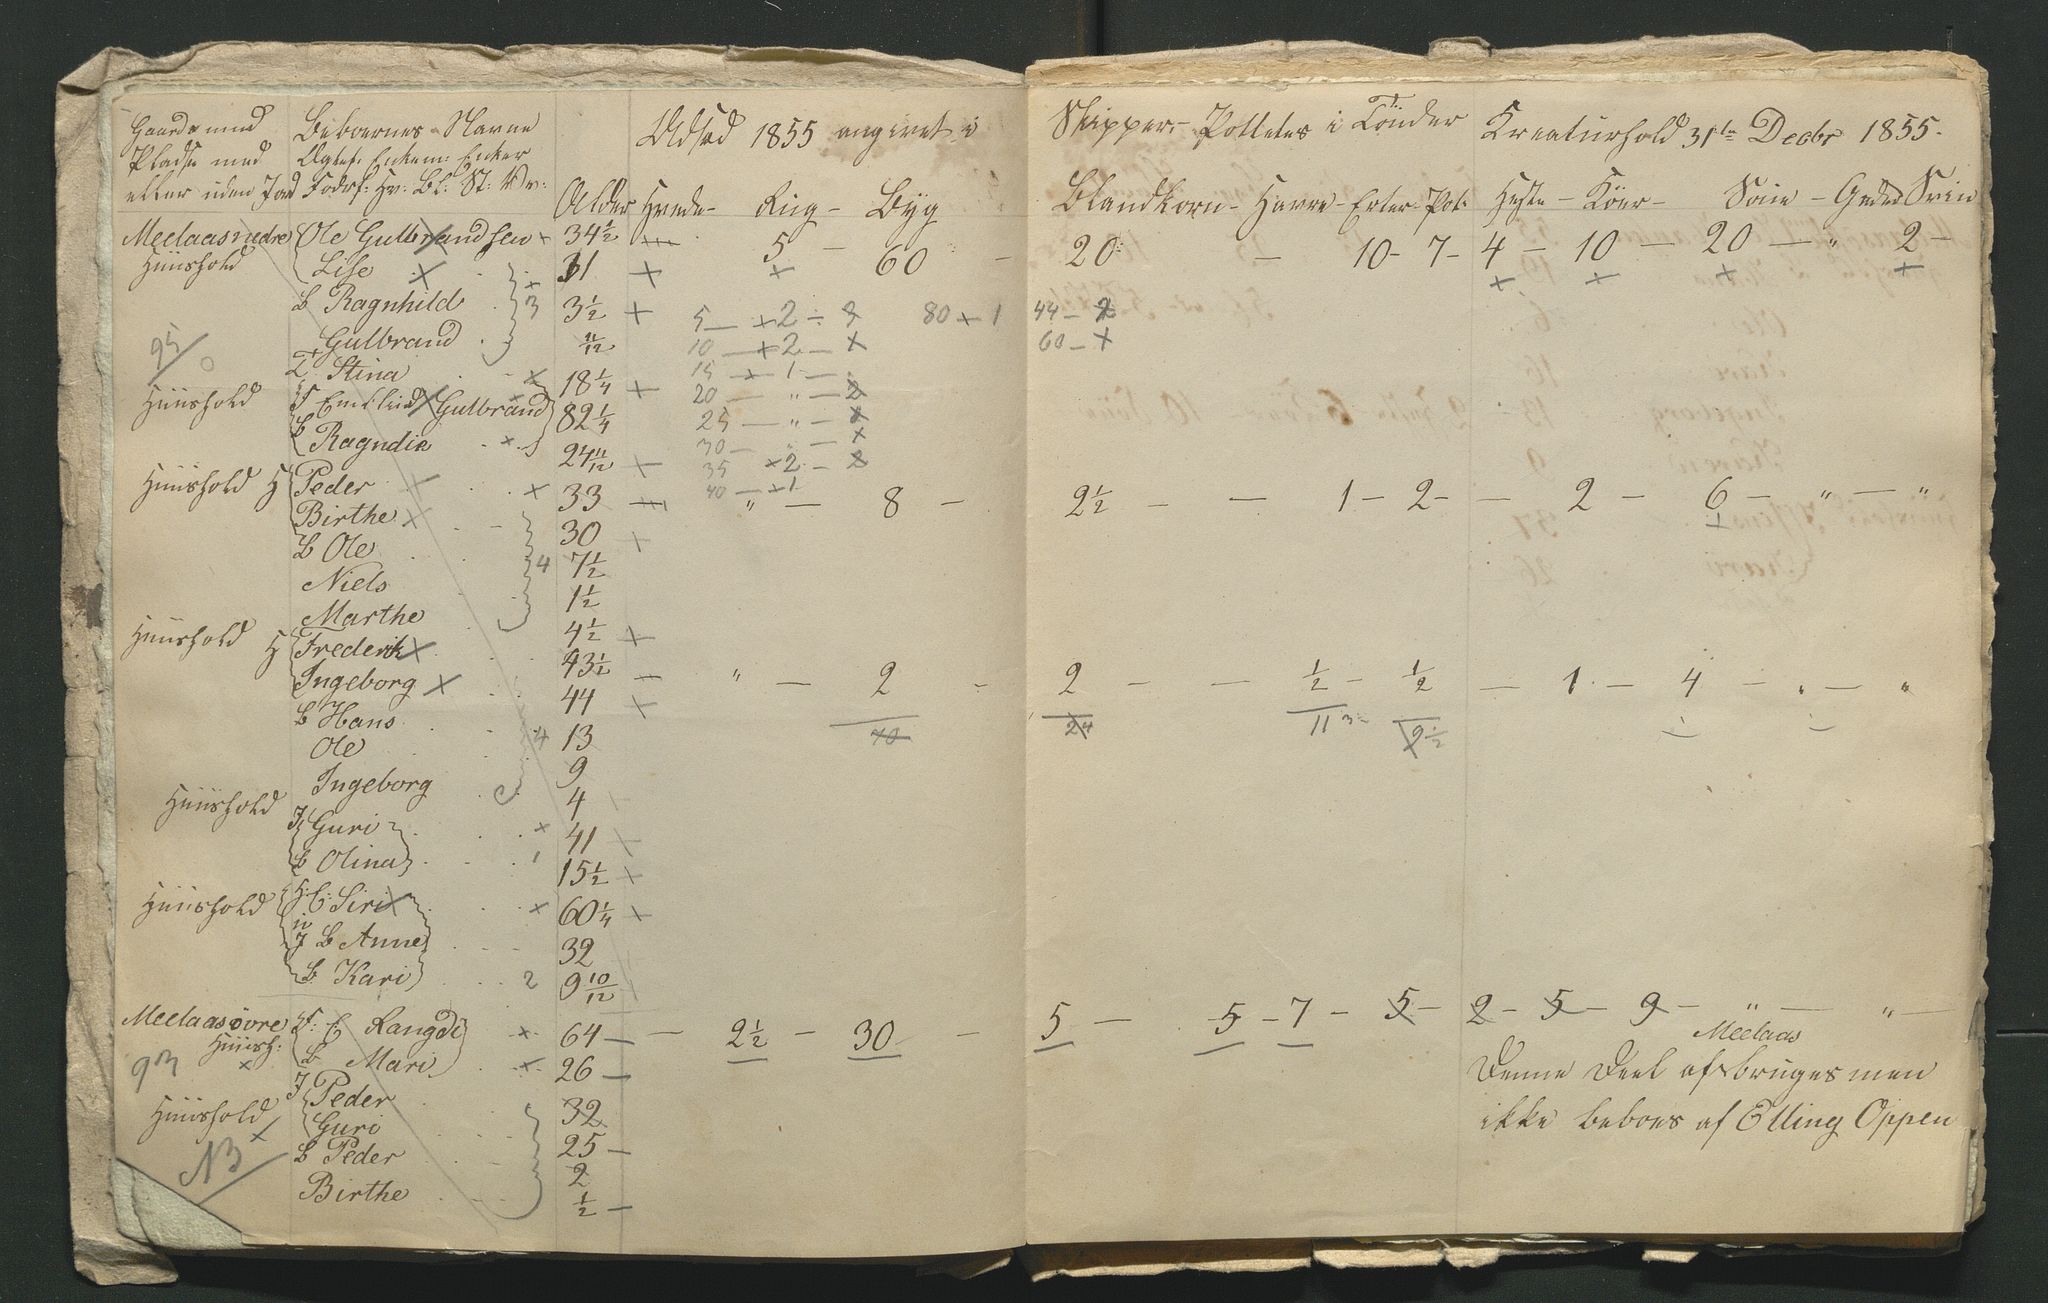 Gaarde med Beboernes Navne Udsæd 1855 angivet i Skipper- Pottetes i Tönder Kreaturhold 31te Decbr 1855.
Pladse med Ægtef: Enkem: Enker
eller uden Jord Alder Hvede- Rug- Byg Blandkorn- Havre- Erter- Pot: Heste- Köer- Soue- Geder Svin
Meelaas nedre Ole Gulbrandsen 34½ 5 — 60 — 20 — 10 - 7 - 4 - 10 — 20 — " 2 -
Huushold Lise 31
B Ragnhild 3 3½ 5 — 2 80 1 44 — 2
Gulbrand 11/12 10 — 2 — 60 —
95 T. Stina 18¼ 15 1 —
Huushold Gulbrand 82¼ 20 — " — 2
25 — " —
B Ragndie 24 11/12 30 — " —
35 2 -
Huushold H Peder 33 40 — 1 " — 8 — 2½ — — 1 - 2 - — 2 — 6 — " — "
Birthe 30
B Ole 4 7½
Niels 1½
Marthe 4½
Huushold H Frederik 43½ " — 2 - 2 — — ½ — ½ — 1 — 4 — " — "
Ingeborg 44
B Hans 4 13 70 24 11 9½
Ole 9
Ingeborg 4
Huushold J Guri 41
B Olina 1 15½
Huushold E: Siri 60¼
J B Anne 32
B Kari 2 9 10/12
Meelaas övre E Rangdi 64 — 2½ — 30 — 5 — 5 - 7 - 5 - 2 - 5 - 9 - " — " —
Huush: B Mari 26 Meelaas
93 J Peder 32 Denne Deel af bruges men
Huushold Guri 25 ikke beboes af Elling Oppen
N3 B Peder 2
Birthe ½